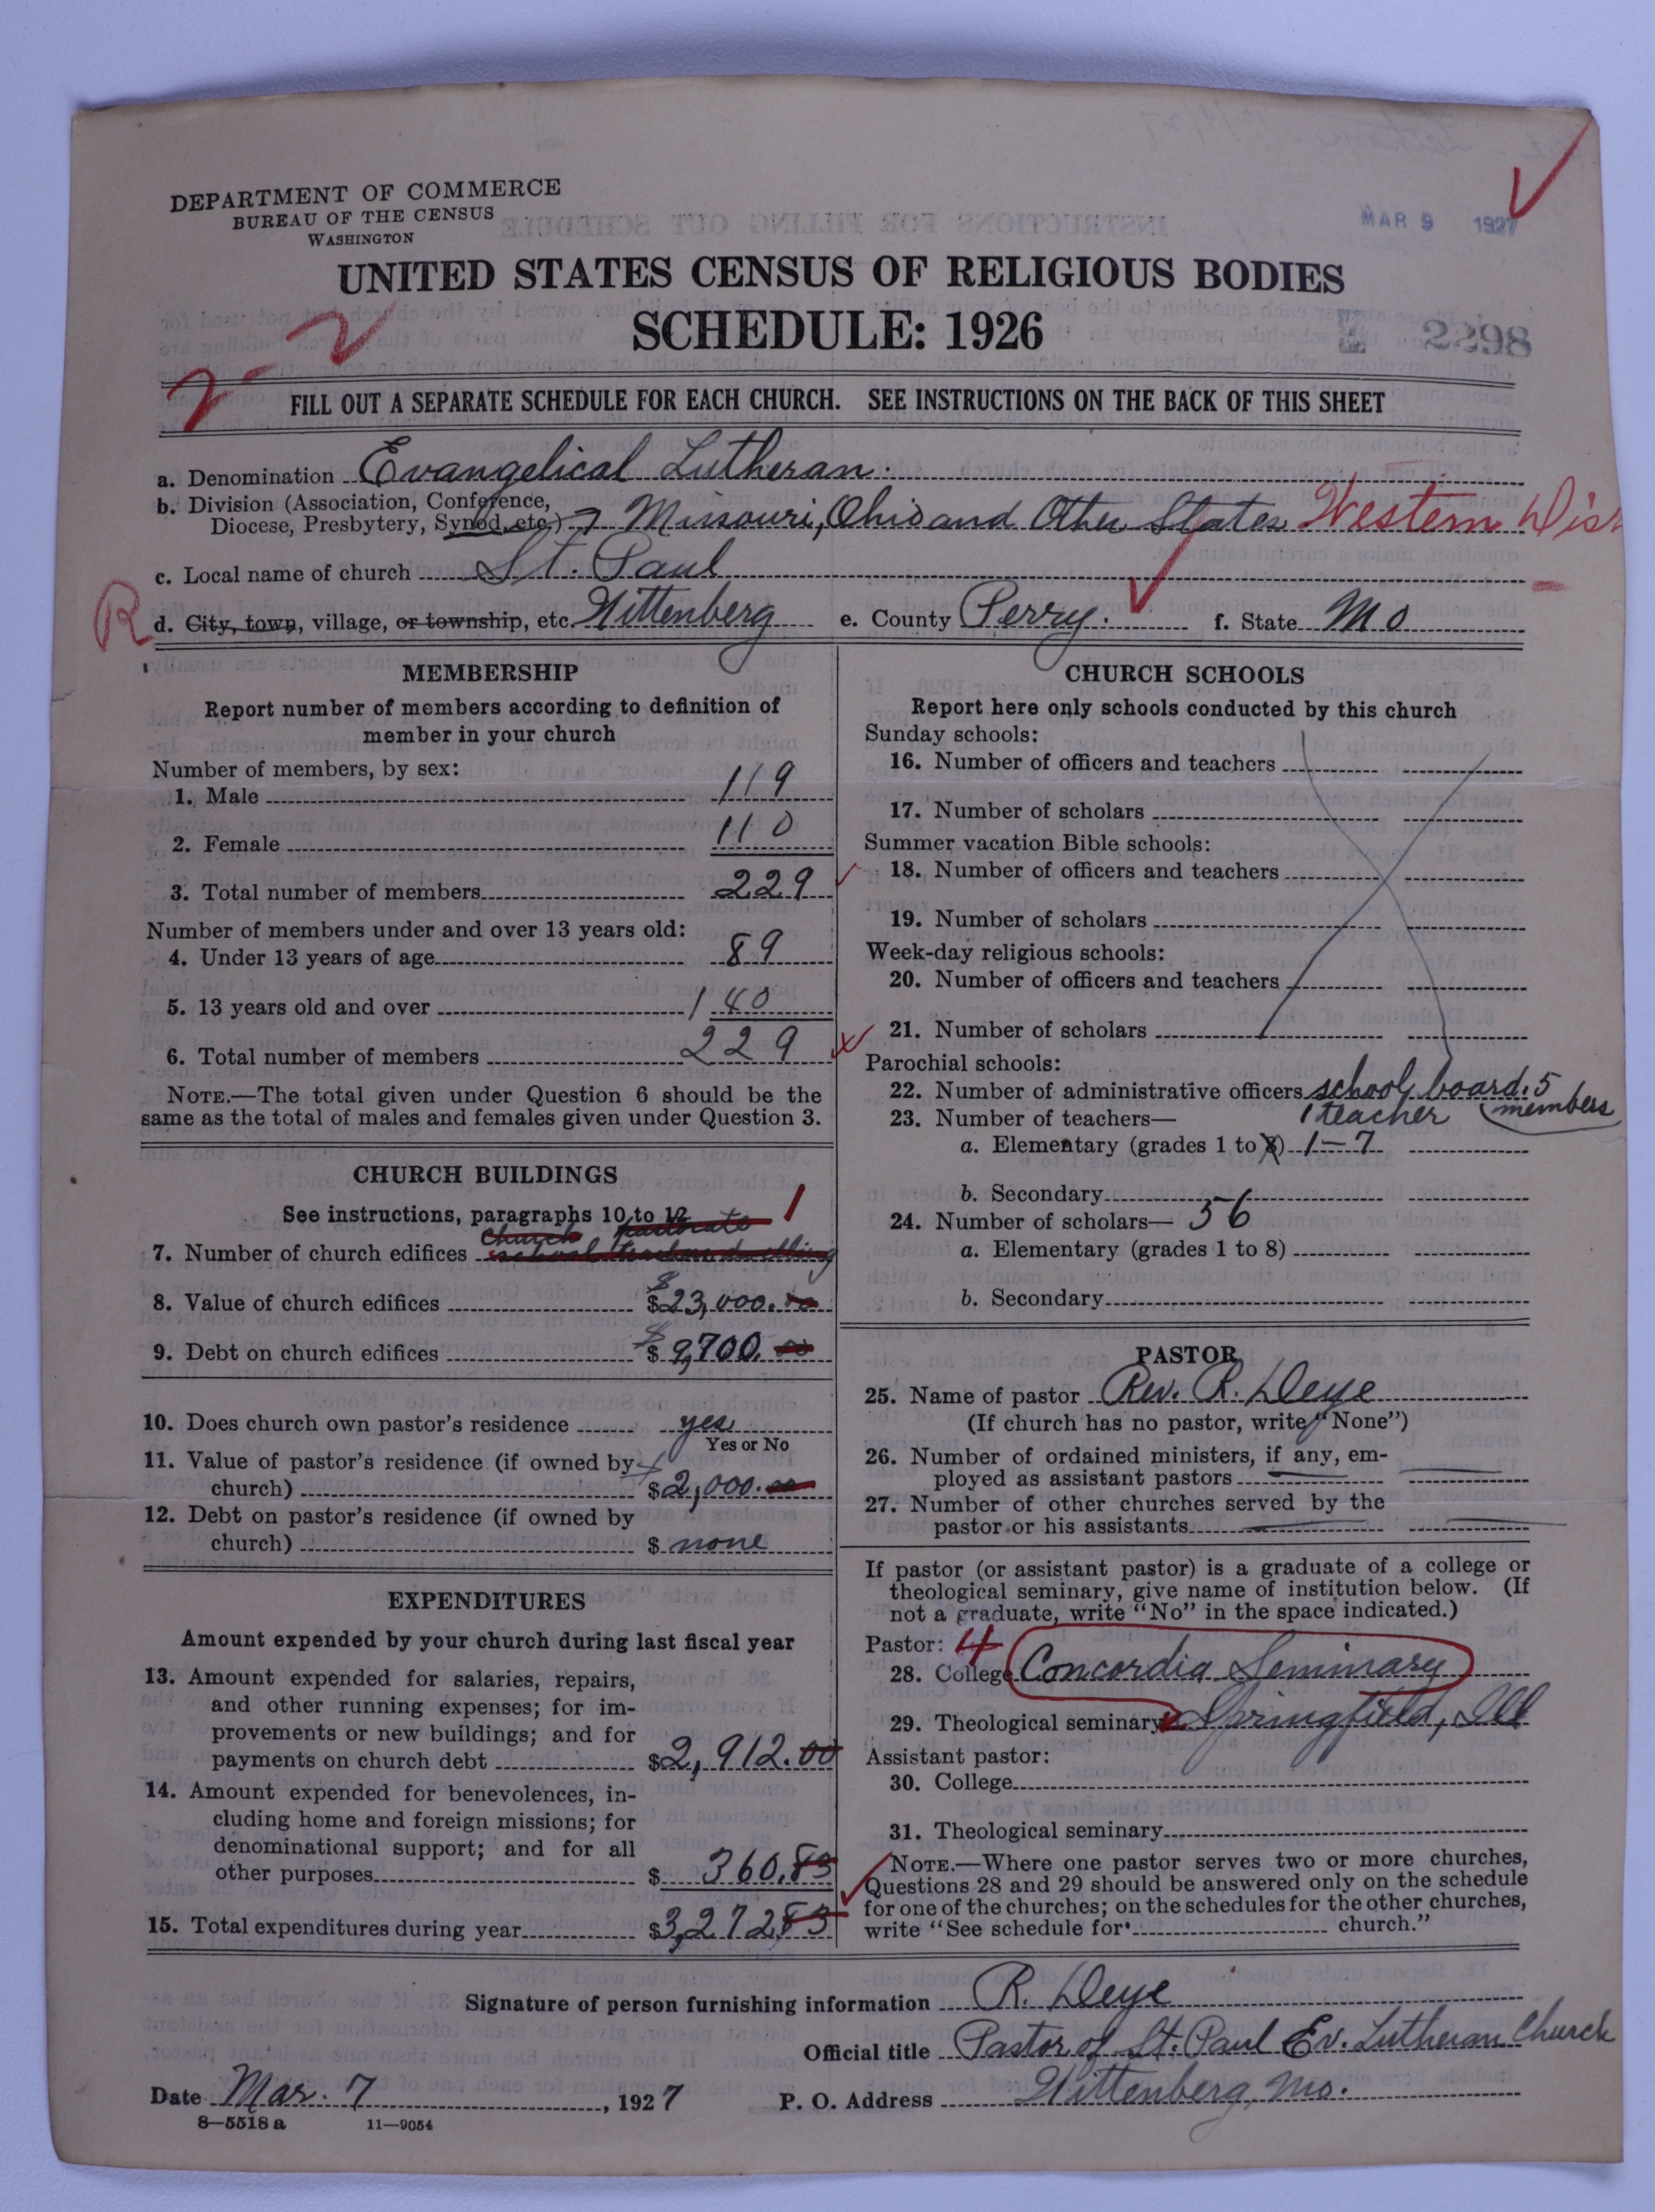 DEPARTMENT OF COMMERCE
BUREAU OF THE CENSUS
WASHINGTON
MAR 9 1927
UNITED STATES CENSUS OF RELIGIOUS BODIES
SCHEDULE: 1926
2298
2-2
FILL OUT A SEPARATE SCHEDULE FOR EACH CHURCH. SEE INSTRUCTIONS ON THE BACK OF THIS SHEET
a. Denomination Evangelical Lutheran.
b. Division (Association, Conference,
Diocese, Presbytery, Synod, etc.) Missouri, Ohio and Other States Western Dist
c. Local name of church St. Paul
R
d. City, town, village, or township, etc. Wittenberg e. County Perry. f. State Mo
MEMBERSHIP
Report number of members according to definition of
member in your church
Number of members, by sex:
1. Male 119
2. Female 110
3. Total number of members 229
Number of members under and over 13 years old:
4. Under 13 years of age 89
5. 13 years old and over 140
6. Total number of members 229
NOTE.—The total given under Question 6 should be the
same as the total of males and females given under Question 3.
CHURCH BUILDINGS
See instructions, paragraphs 10 to 12
1
Church parsonate
7. Number of church edifices school teachers dwelling
8. Value of church edifices $23,000.00
9. Debt on church edifices $9,700.00
10. Does church own pastor's residence yes
Yes or No
11. Value of pastor's residence (if owned by
church) $2,000.00
12. Debt on pastor's residence (if owned by
church) $ none
EXPENDITURES
Amount expended by your church during last fiscal year
13. Amount expended for salaries, repairs,
and other running expenses; for im-
provements or new buildings; and for
payments on church debt $2,912.00
14. Amount expended for benevolences, in-
cluding home and foreign missions; for
denominational support; and for all
other purposes $ 360.83
15. Total expenditures during year $3,272.83
CHURCH SCHOOLS
Report here only schools conducted by this church
Sunday schools:
16. Number of officers and teachers
17. Number of scholars
Summer vacation Bible schools:
18. Number of officers and teachers
19. Number of scholars
Week-day religious schools:
20. Number of officers and teachers
21. Number of scholars
Parochial schools:
22. Number of administrative officers school board: 5
members
23. Number of teachers— 1 teacher
a. Elementary (grades 1 to 8) 1–7
b. Secondary
24. Number of scholars— 56
a. Elementary (grades 1 to 8)
b. Secondary
PASTOR
25. Name of pastor Rev. R. Deye
(If church has no pastor, write "None")
26. Number of ordained ministers, if any, em-
ployed as assistant pastors
27. Number of other churches served by the
pastor or his assistants
If pastor (or assistant pastor) is a graduate of a college or
theological seminary, give name of institution below. (If
not a graduate, write "No" in the space indicated.)
Pastor: 4
28. College Concordia Seminary
29. Theological seminary Springfield, Ill
Assistant pastor:
30. College
31. Theological seminary
NOTE.—Where one pastor serves two or more churches,
Questions 28 and 29 should be answered only on the schedule
for one of the churches; on the schedules for the other churches,
write "See schedule for church."
Signature of person furnishing information R. Deye
Official title Pastor of St. Paul Ev. Lutheran Church
Date Mar. 7, 1927 P. O. Address Wittenberg, Mo.
8—5518 a 11—9054